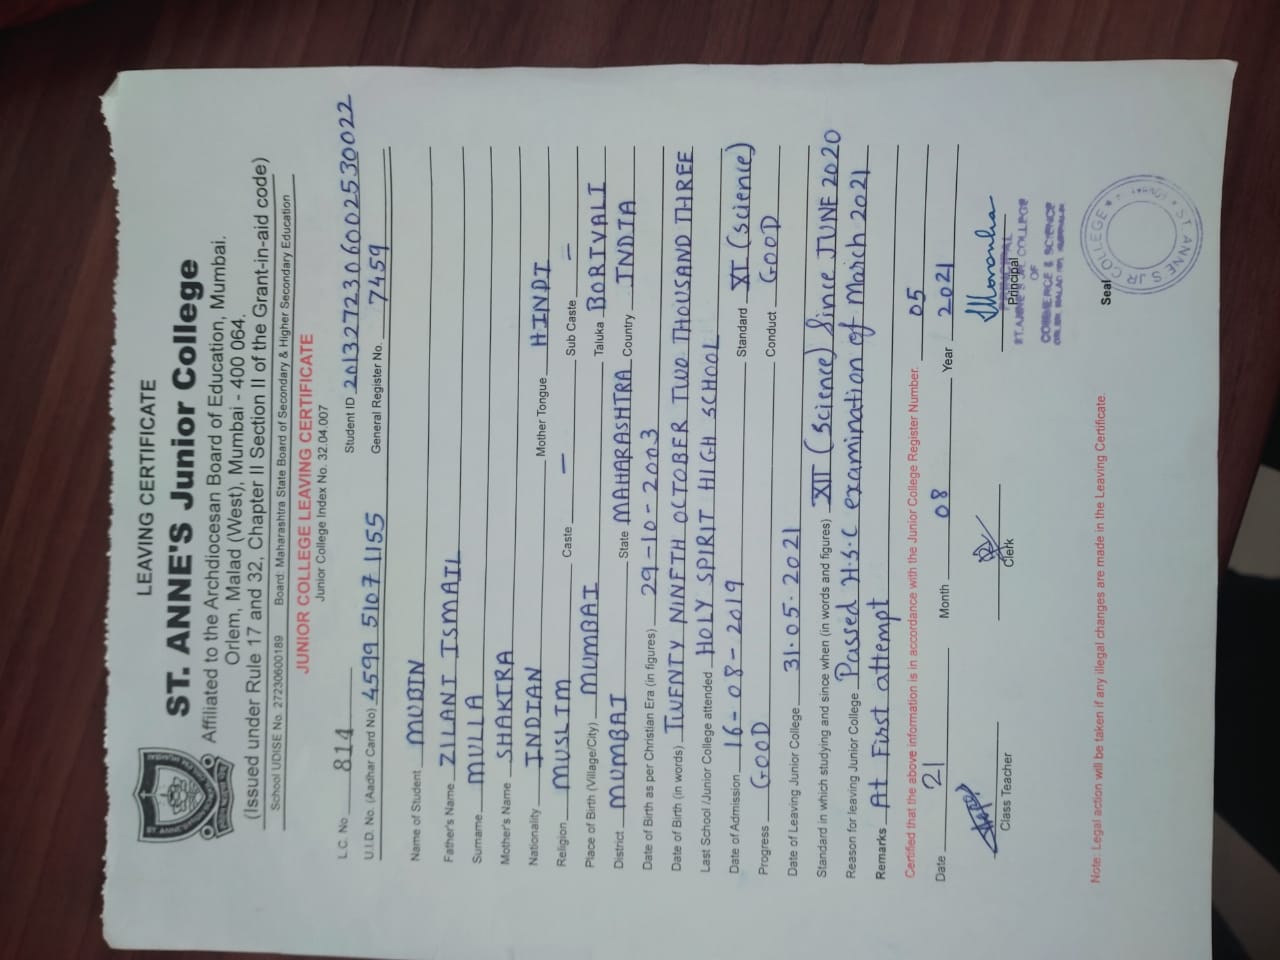 LEAVING CERTIFICATE
ST. ANNE'S Junior College
Affiliated to the Archdiocesan Board of Education, Mumbai.
Orlem, Malad (West), Mumbai - 400 064.
(Issued under Rule 17 and 32, Chapter II Section II of the Grant-in-aid code)
School UDISE No. 27230600189 Board: Maharashtra State Board of Secondary & Higher Secondary Education
JUNIOR COLLEGE LEAVING CERTIFICATE
Junior College Index No. 32.04.007
L.C. No 814 Student ID 2013272306002530022
U.I.D. No. (Aadhar Card No) 4599 5107 1155 General Register No. 7459
Name of Student MUBIN
Father's Name ZILANI ISMAIL
Surname MULLA
Mother's Name SHAKIRA
Nationality INDIAN Mother Tongue HINDI
Religion MUSLIM Caste — Sub Caste —
Place of Birth (Village/City) MUMBAI Taluka BORIVALI
District MUMBAI State MAHARASHTRA Country INDIA
Date of Birth as per Christian Era (in figures) 29-10-2003
Date of Birth (in words) TWENTY NINETH OCTOBER TWO THOUSAND THREE
Last School /Junior College attended HOLY SPIRIT HIGH SCHOOL
Date of Admission 16-08-2019 Standard XI (Science)
Progress GOOD Conduct GOOD
Date of Leaving Junior College 31.05.2021
Standard in which studying and since when (in words and figures) XII (Science) Since JUNE 2020
Reason for leaving Junior College Passed H.S.C examination of March 2021
Remarks At First attempt
Certified that the above information is in accordance with the Junior College Register Number. 05
Date 21 Month 08 Year 2021
Class Teacher Clerk Principal
PRINCIPAL
ST. ANNE'S JR. COLLEGE
OF
COMMERCE & SCIENCE
Note: Legal action will be taken if any illegal changes are made in the Leaving Certificate.
Seal
ST. ANNE'S JR COLLEGE